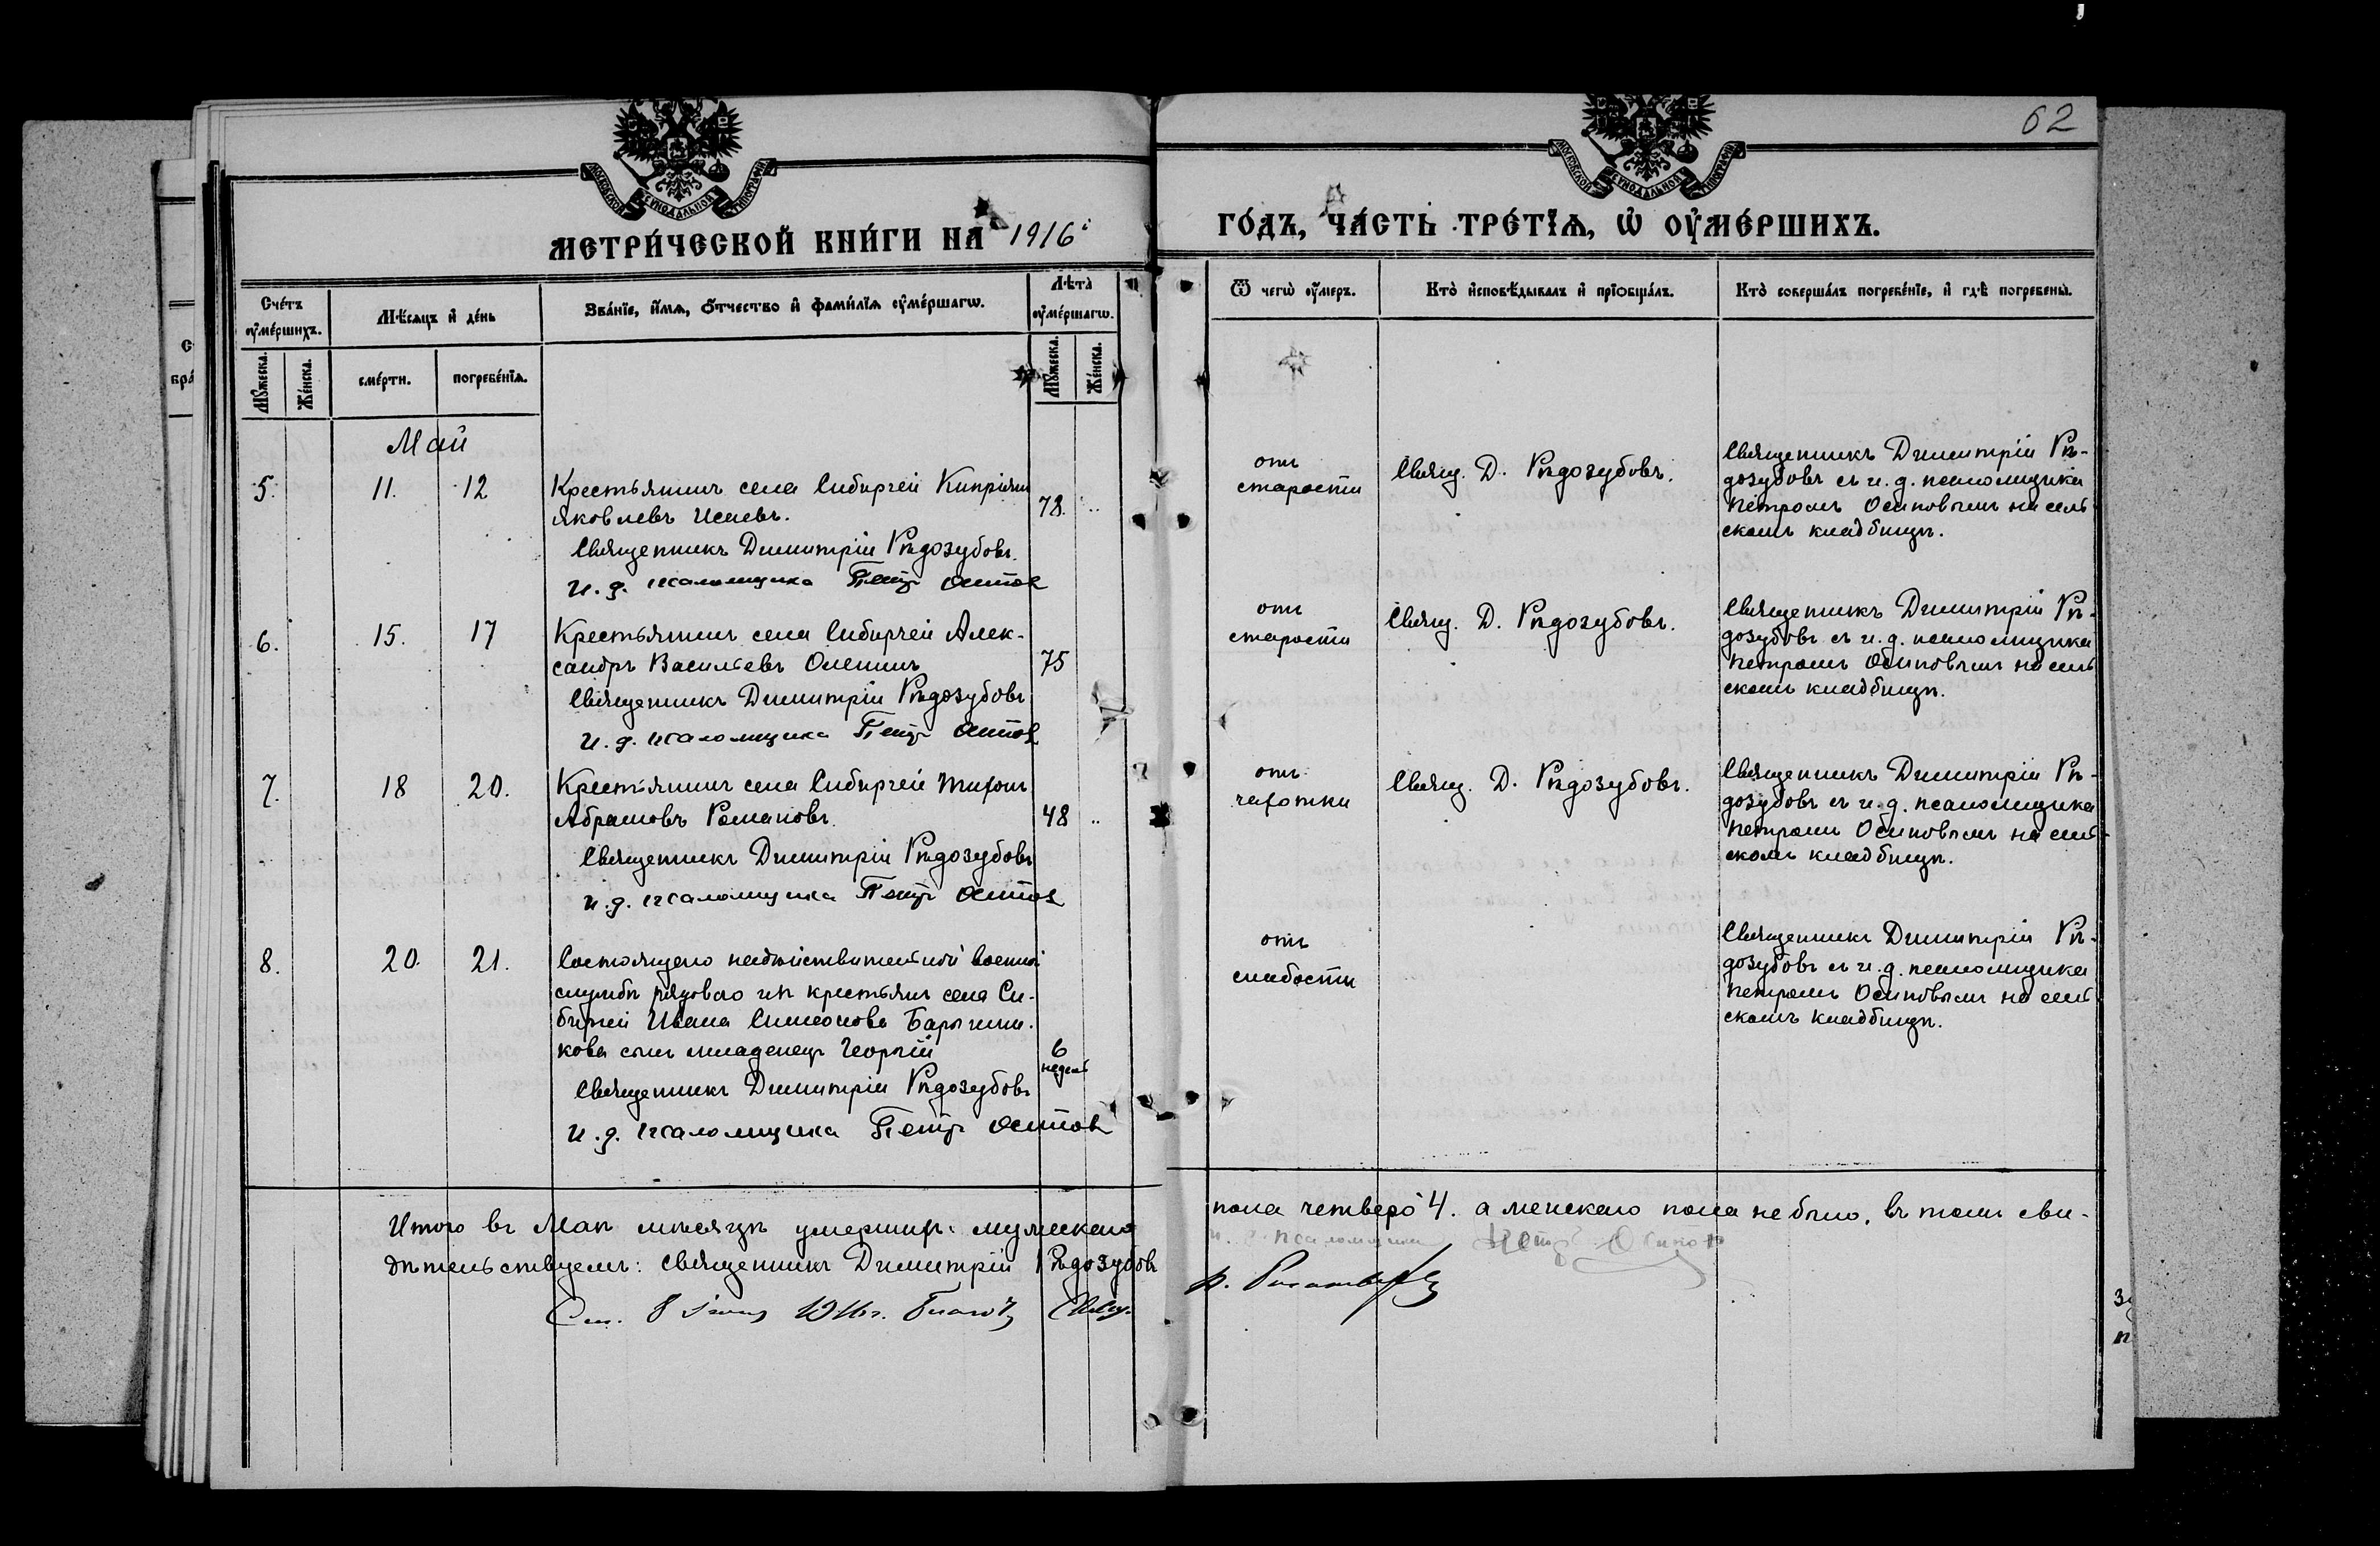 62
МОСКОВСКОЙ СѴНОДАЛЬНОЙ ТИПОГРАФІИ
МОСКОВСКОЙ СѴНОДАЛЬНОЙ ТИПОГРАФІИ
МЕТРИ́ЧЕСКОЙ КНИ́ГИ НА 1916
ГО́ДЪ, ЧА́СТЬ ТРЕ́ТІѦ, Ѡ҆ ОУ҆МЕ́РШИХЪ.
Сче́тъ оу҆ме́ршихъ.
Мꙋ́жеска.
Же́нска.
Мѣ́сѧцъ и҆ де́нь
сме́рти.
погребе́нїѧ.
Зва́нїе, и҆́мѧ, ѻ҆́тчество и҆ фами́лїѧ оу҆ме́ршагѡ.
Лѣ́та оу҆ме́ршагѡ.
Мꙋ́жеска.
Же́нска.
Ѿ чегѡ̀ оу҆́меръ.
Кто̀ и҆сповѣ́дывалъ и҆ прїѡбща́лъ.
Кто̀ соверша́лъ погребе́нїе, и҆ гдѣ̀ погребены̀.
Май
5. 11. 12
Крестьянинъ села Сибирчей Кипріянъ
Яковлевъ Исаевъ.
78.
Священникъ Димитрій Рѣдозубовъ.
И. д. псаломщика Петръ Осипов
отъ
старости
Свящ. Д. Рѣдозубовъ.
Священникъ Димитрій Рѣ-
дозубовъ съ и. д. псаломщика
Петромъ Осиповымъ на сель
скомъ кладбищѣ.
6. 15. 17
Крестьянинъ села Сибирчей Алек-
сандръ Васильевъ Оленинъ
75
Священникъ Димитрій Рѣдозубовъ
И. д. псаломщика Петръ Осипов
отъ
старости
Свящ. Д. Рѣдозубовъ.
Священникъ Димитрій Рѣ-
дозубовъ съ и. д. псаломщика
Петромъ Осиповымъ на сель
скомъ кладбищѣ.
7. 18 20.
Крестьянинъ села Сибирчей Тихонъ
Абрамовъ Романовъ.
48
Священникъ Димитрій Рѣдозубовъ
И. д. псаломщика Петръ Осипов
отъ
чахотки
Свящ. Д. Рѣдозубовъ.
Священникъ Димитрій Рѣ-
дозубовъ съ и. д. псаломщика
Петромъ Осиповымъ на сель-
скомъ кладбищѣ.
8. 20. 21.
Состоящего на дѣйствительной военной
службѣ рядового изъ крестьянъ села Си-
бирчей Ивана Симеонова
кова сынъ младенецъ Георгій
6
недель
Священникъ Димитрій Рѣдозубовъ
И. д. псаломщика Петръ Осипов
отъ
слабости
Священникъ Димитрій Рѣ-
дозубовъ съ и. д. псаломщика
Петромъ Осиповымъ на сель
скомъ кладбищѣ.
Итого въ Маѣ мѣсяцѣ умершихъ: мужескаго
пола четверо 4. а женскаго пола не было, въ томъ сви-
дѣтельствуемъ: Священникъ Димитрій Рѣдозубовъ
и. д. псаломщика Петръ Осиповъ